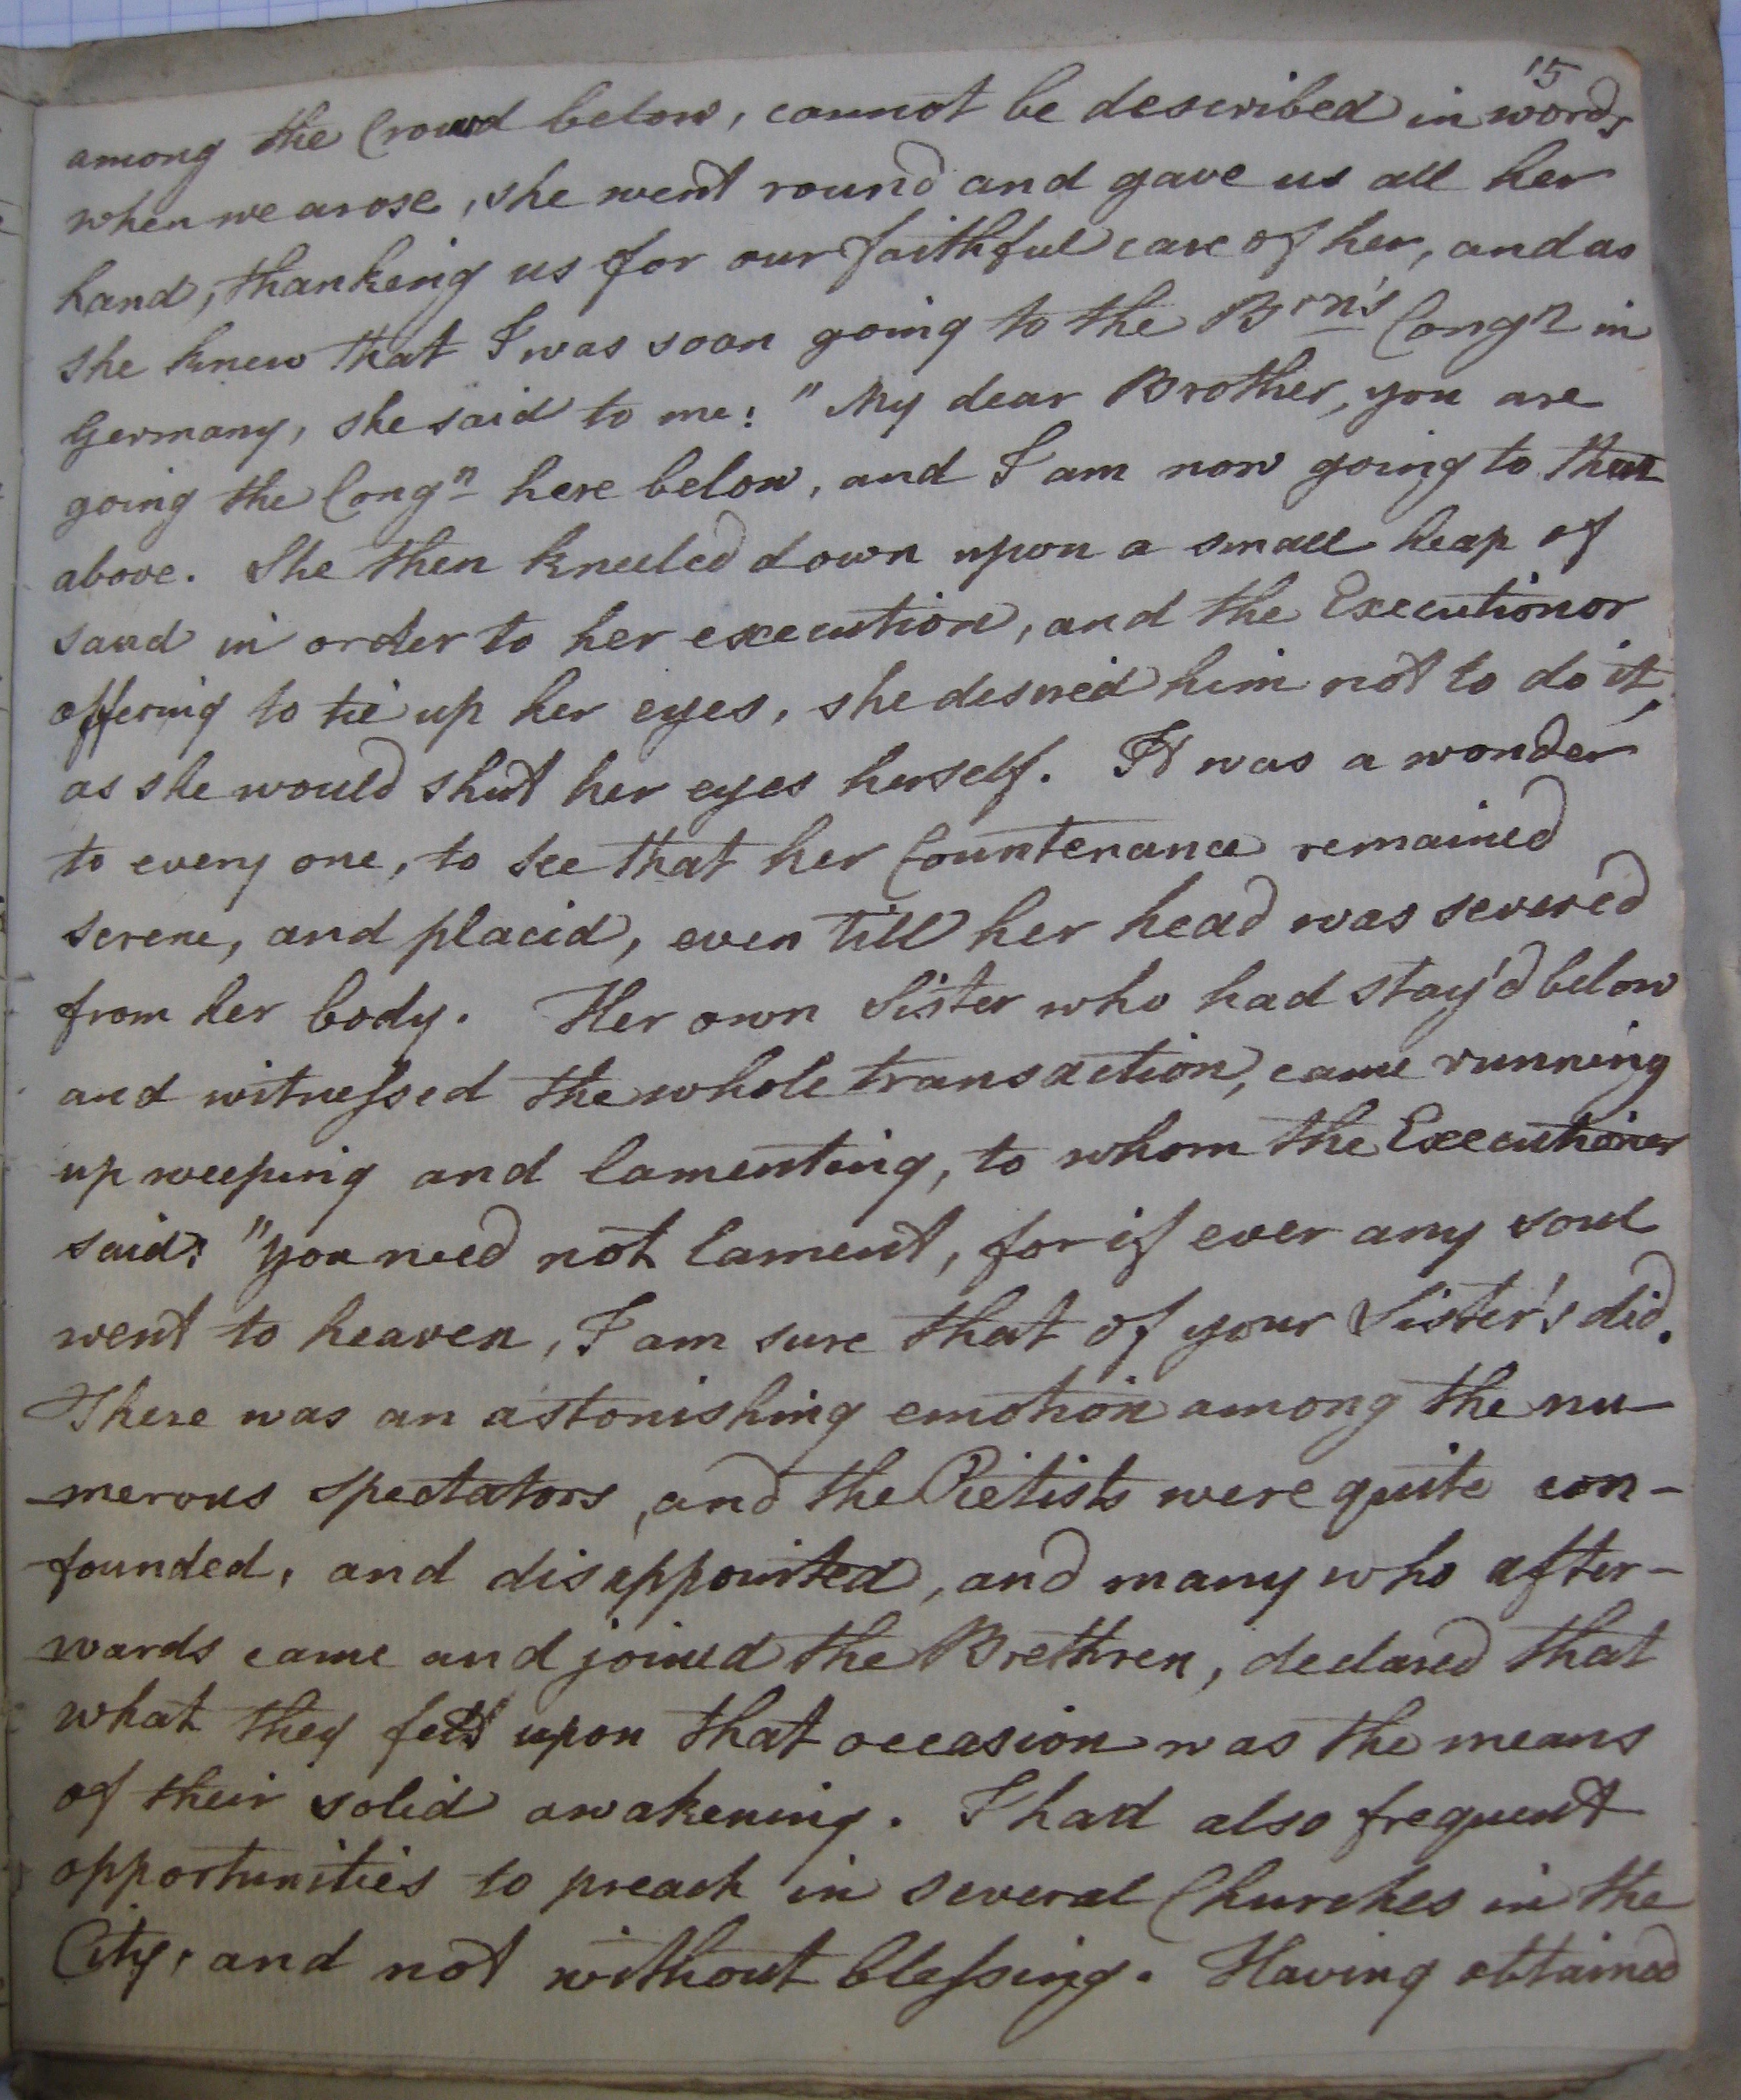 15
among the Crowd below, cannot be described in words
when we arose, she went round and gave us all her
hand, thanking us for our faithful care of her, and as
she knew that I was soon going to the Brn's Congn in
Germany, she said to me: "My dear Brother, you are
going the Congn here below, and I am now going to that
above. She then kneeled down upon a small heap of
sand in order to her execution, and the Executionor
offering to tie up her eyes, she desired him not to do it,
as she would shut her eyes herself. It was a wonder
to every one, to see that her Countenance remained
serene, and placid, even till her head was severed
from her body. Her own Sister who had stay'd below
and witnessed the whole transaction, came running
up weeping and lamenting, to whom the Executioner
said: "you need not lament, for if ever any soul
went to heaven, I am sure that of your Sister's did.
There was an astonishing emotion among the nu-
-merous spectators, and the Pietists were quite con-
founded, and disappointed, and many who after-
wards came and joined the Brethren, declared that
what they felt upon that occasion was the means
of their solid awakening. I had also frequent
opportunities to preach in several Churches in the
City, and not without blessing. Having obtained